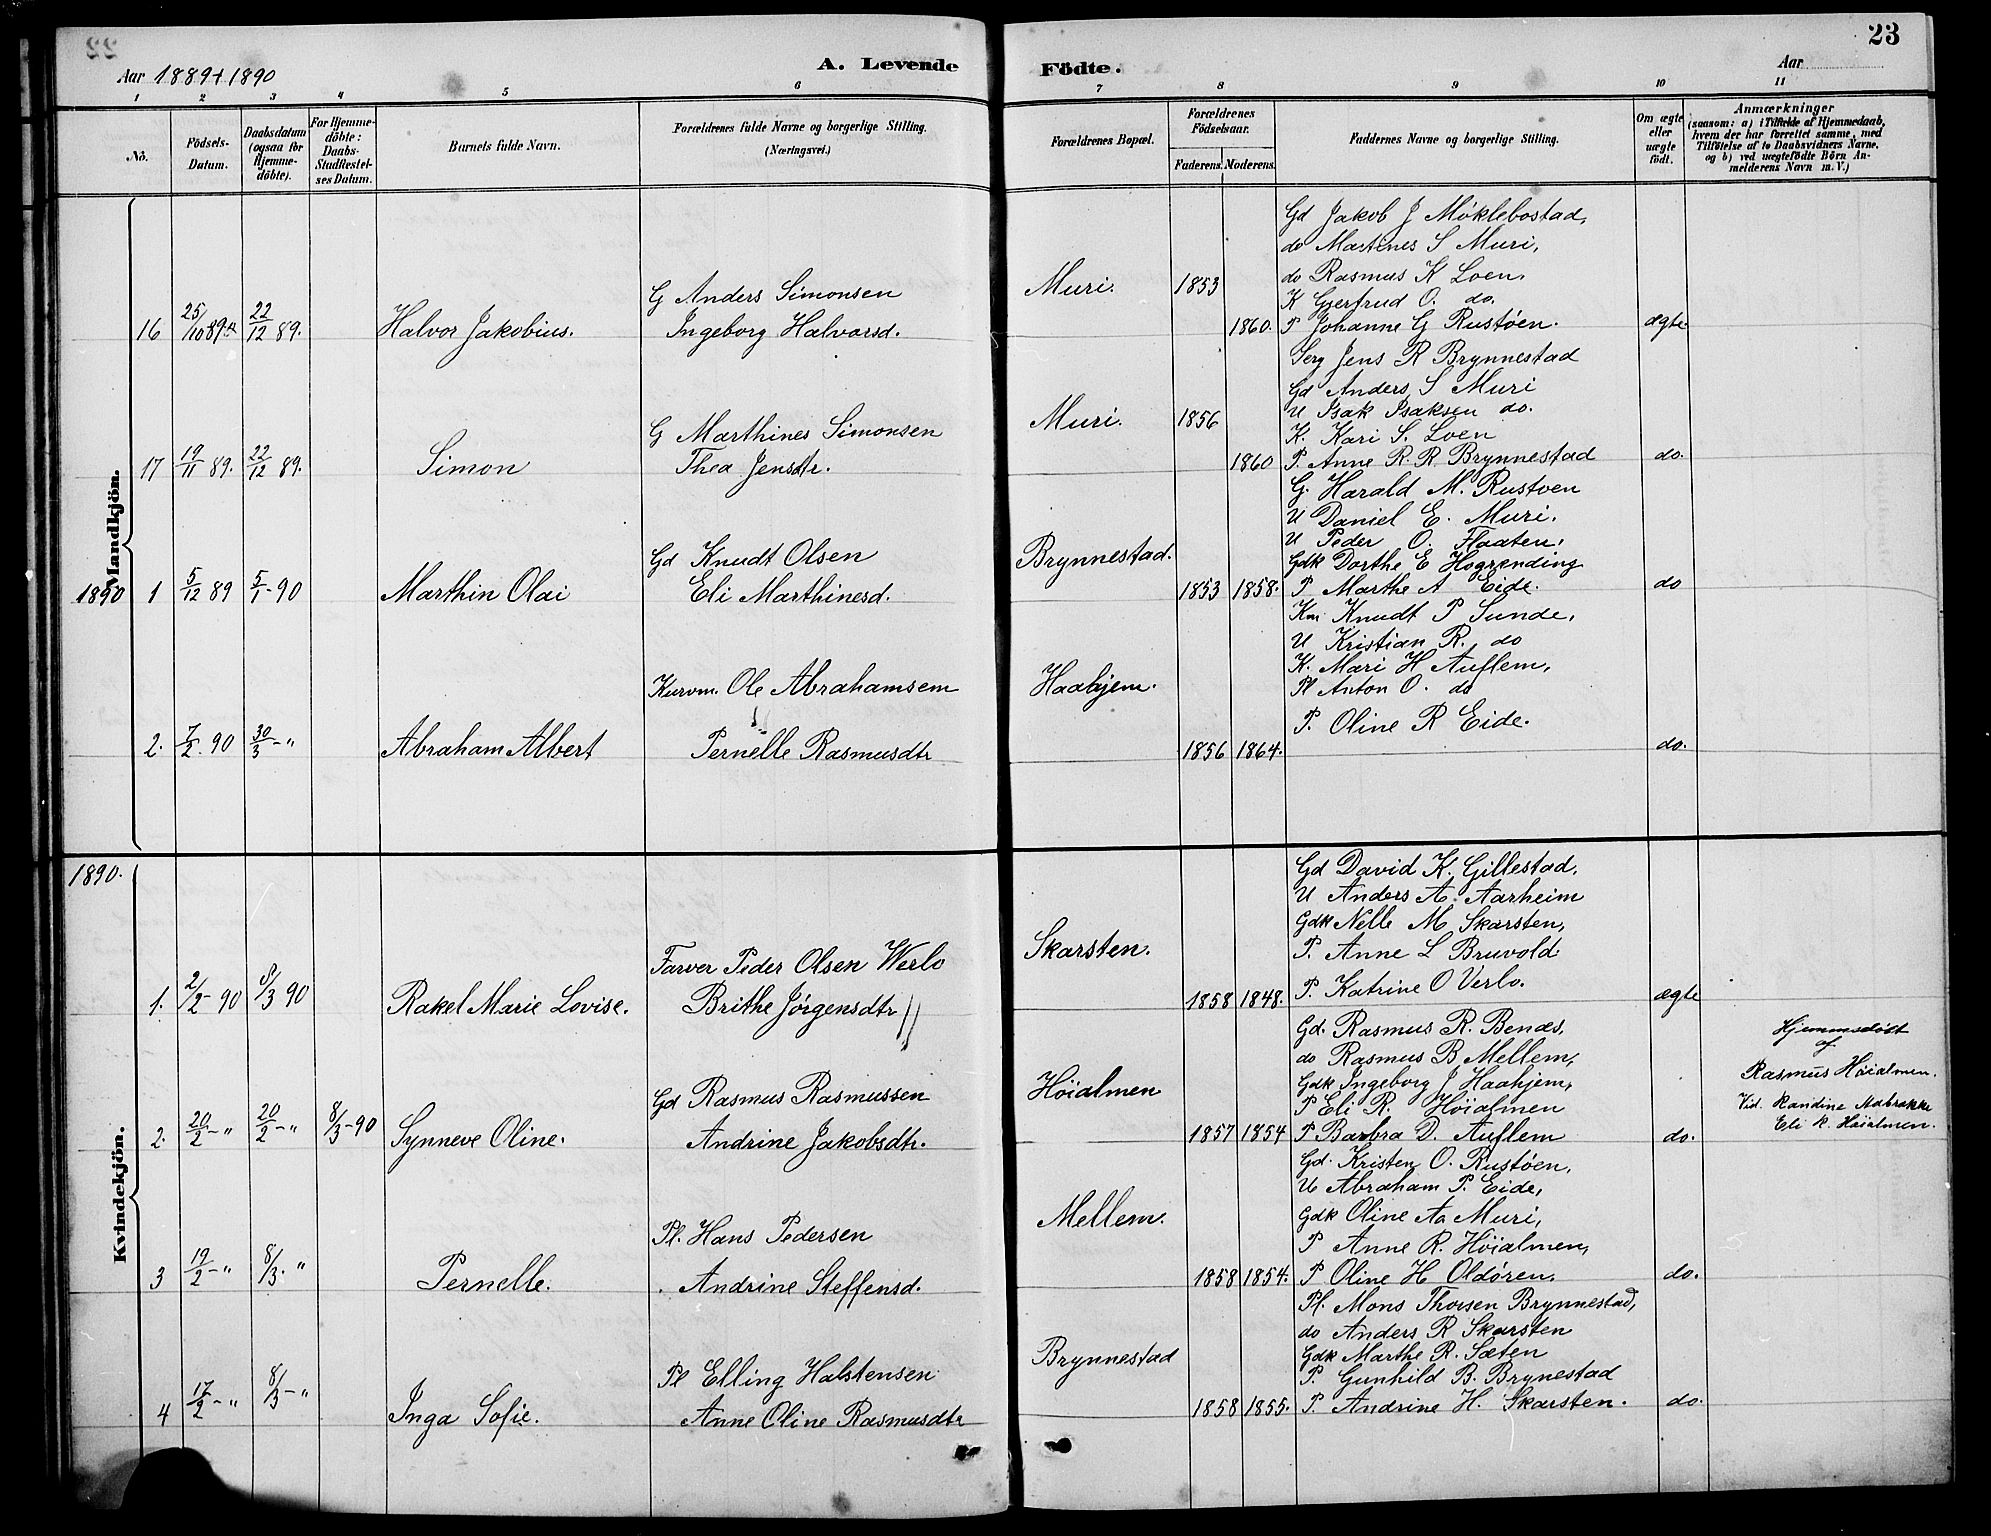 Aar 1889 + 1890
A. Levende
Födte.
23
Aar
1 2 3 4 5 6 7 8 9 10 11
No.
Födsels-
Datum.
Daabsdatum
(ogsaa for
Hjemme-
döbte).
For Hjemme-
döbte:
Daabs-
Stadfæstel-
ses Datum.
Barnets fulde Navn.
Forældrenes fulde Navne og borgerlige Stilling.
(Næringsvei.)
Forældrenes Bopæl.
Forældrenes
Födselsaar.
Faderens. Moderens.
Faddernes Navne og borgerlige Stilling.
Om ægte
eller
uægte
født.
Anmærkninger
(saasom: a) i Tilfælde af Hjemmedaab,
hvem der har forrettet samme, med
Tilføielse af to Daabsvidners Navne,
og b) ved uægtefödte Börn An-
melderens Navn m. V.)
Mandkjön.
16 25/10 89. 22/12 89. Halvor Jakobius.
G Anders Simonsen
Ingeborg Halvorsd.
Muri. 1853 1860.
Gd Jakob J Møklebostad,
do Martenes S Muri,
do Rasmus K Loen.
K Gjertrud O. do.
P Johanne G Rustøen. ægte
17 19/11 89. 22/12 89. Simon
G Marthines Simonsen
Thea Jensdtr.
Muri. 1856 1860
Serg Jens R Brynnestad
Gd Anders S Muri
U Isak Isaksen do.
K. Kari S. Loen
P. Anne R. R. Brynnestad do.
1890 1 5/12 89 5/1-90 Marthin Olai
Gd Knudt Olsen
Eli Marthinesd.
Brynnestad. 1853 1858.
G. Harald M. Rustoen
U Daniel E. Muri.
U Peder O. Flaaten.
Gdk Dorthe E Hogrending
P Marthe A Eide. do
2. 7/2. 90 30/3-" Abraham Albert
Kurvm. Ole Abrahamsem
Pernelle Rasmusdtr
Haahjem. 1856 1864.
Km Knudt P Sunde,
U Kristian R. do
K. Mari H Auflem,
Pl Anton O. do
P. Oline R Eide.
do.
1890.
Kvindekjön.
1. 2/2-90 8/3 90 Rakel Marie Lovise.
Farver Peder Olsen Werlo
Brithe Jørgensdtr
Skarsten. 1858 1848.
Gd David K. Gillestad,
U Anders A. Aarheim
Gdk Nelle M Skarsten,
P. Anne L Bruvold
P. Katrine O Verlo. ægte
2. 20/2-" 20/2-" 8/3-90 Synneve Oline.
Gd Rasmus Rasmussen
Andrine Jakobsdtr.
Höialmen 1857 1854
Gd. Rasmus R. Benæs,
do Rasmus B Mellem,
Gdk Ingeborg J Haahjem,
P Eli R. Höialmen
P Barbra D. Auflem do.
Hjemmedøbt
af
Rasmus Höialmen.
Vid. Randine Aabrække
Eli R. Höialmen.
3 19/2-" 8/3. " Pernelle.
Pl. Hans Pedersen
Andrine Steffensd.
Mellem. 1858 1854.
Gd. Kristen O. Rustöen,
U Abraham P. Eide,
Gdk Oline Aa Muri,
P Anne R. Höialmen,
P Oline H Oldören. do.
4 17/2-" 8/3-" Inga Sofie.
Pl Elling Halstensen
Anne Oline Rasmusdtr
Brynnestad 1858 1855.
Pl. Mons Thorsen Brynnestad,
do Anders R Skarsten
Gdk Marthe R. Sæten
P. Gunhild B. Brynestad
P. Andrine H. Skarsten. do.